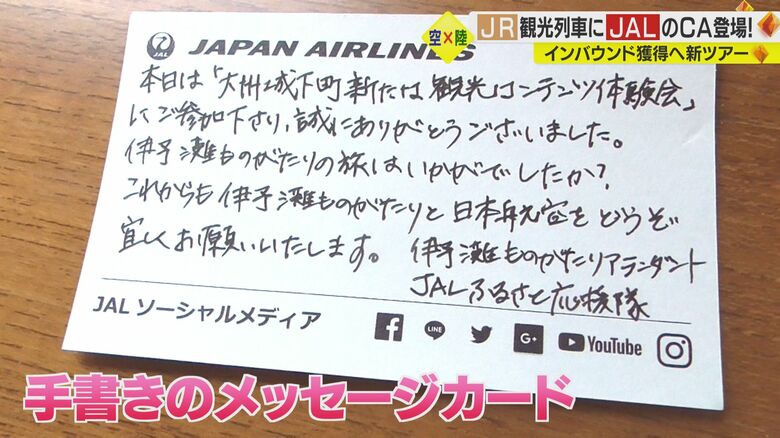 空×陸
JR観光列車にJALのCA登場!
インバウンド獲得へ新ツアー
JAL JAPAN AIRLINES
本日は「大洲城下町新たな観光コンテンツ体験会」
にご参加下さり、誠にありがとうございました。
伊予灘ものがたりの旅はいかがでしたか?
これからも伊予灘ものがたりと日本航空をどうぞ
宜しくお願いいたします。
伊予灘ものがたりアテンダント
JALふるさと応援隊
JAL ソーシャルメディア
LINE
G+
YouTube
手書きのメッセージカード